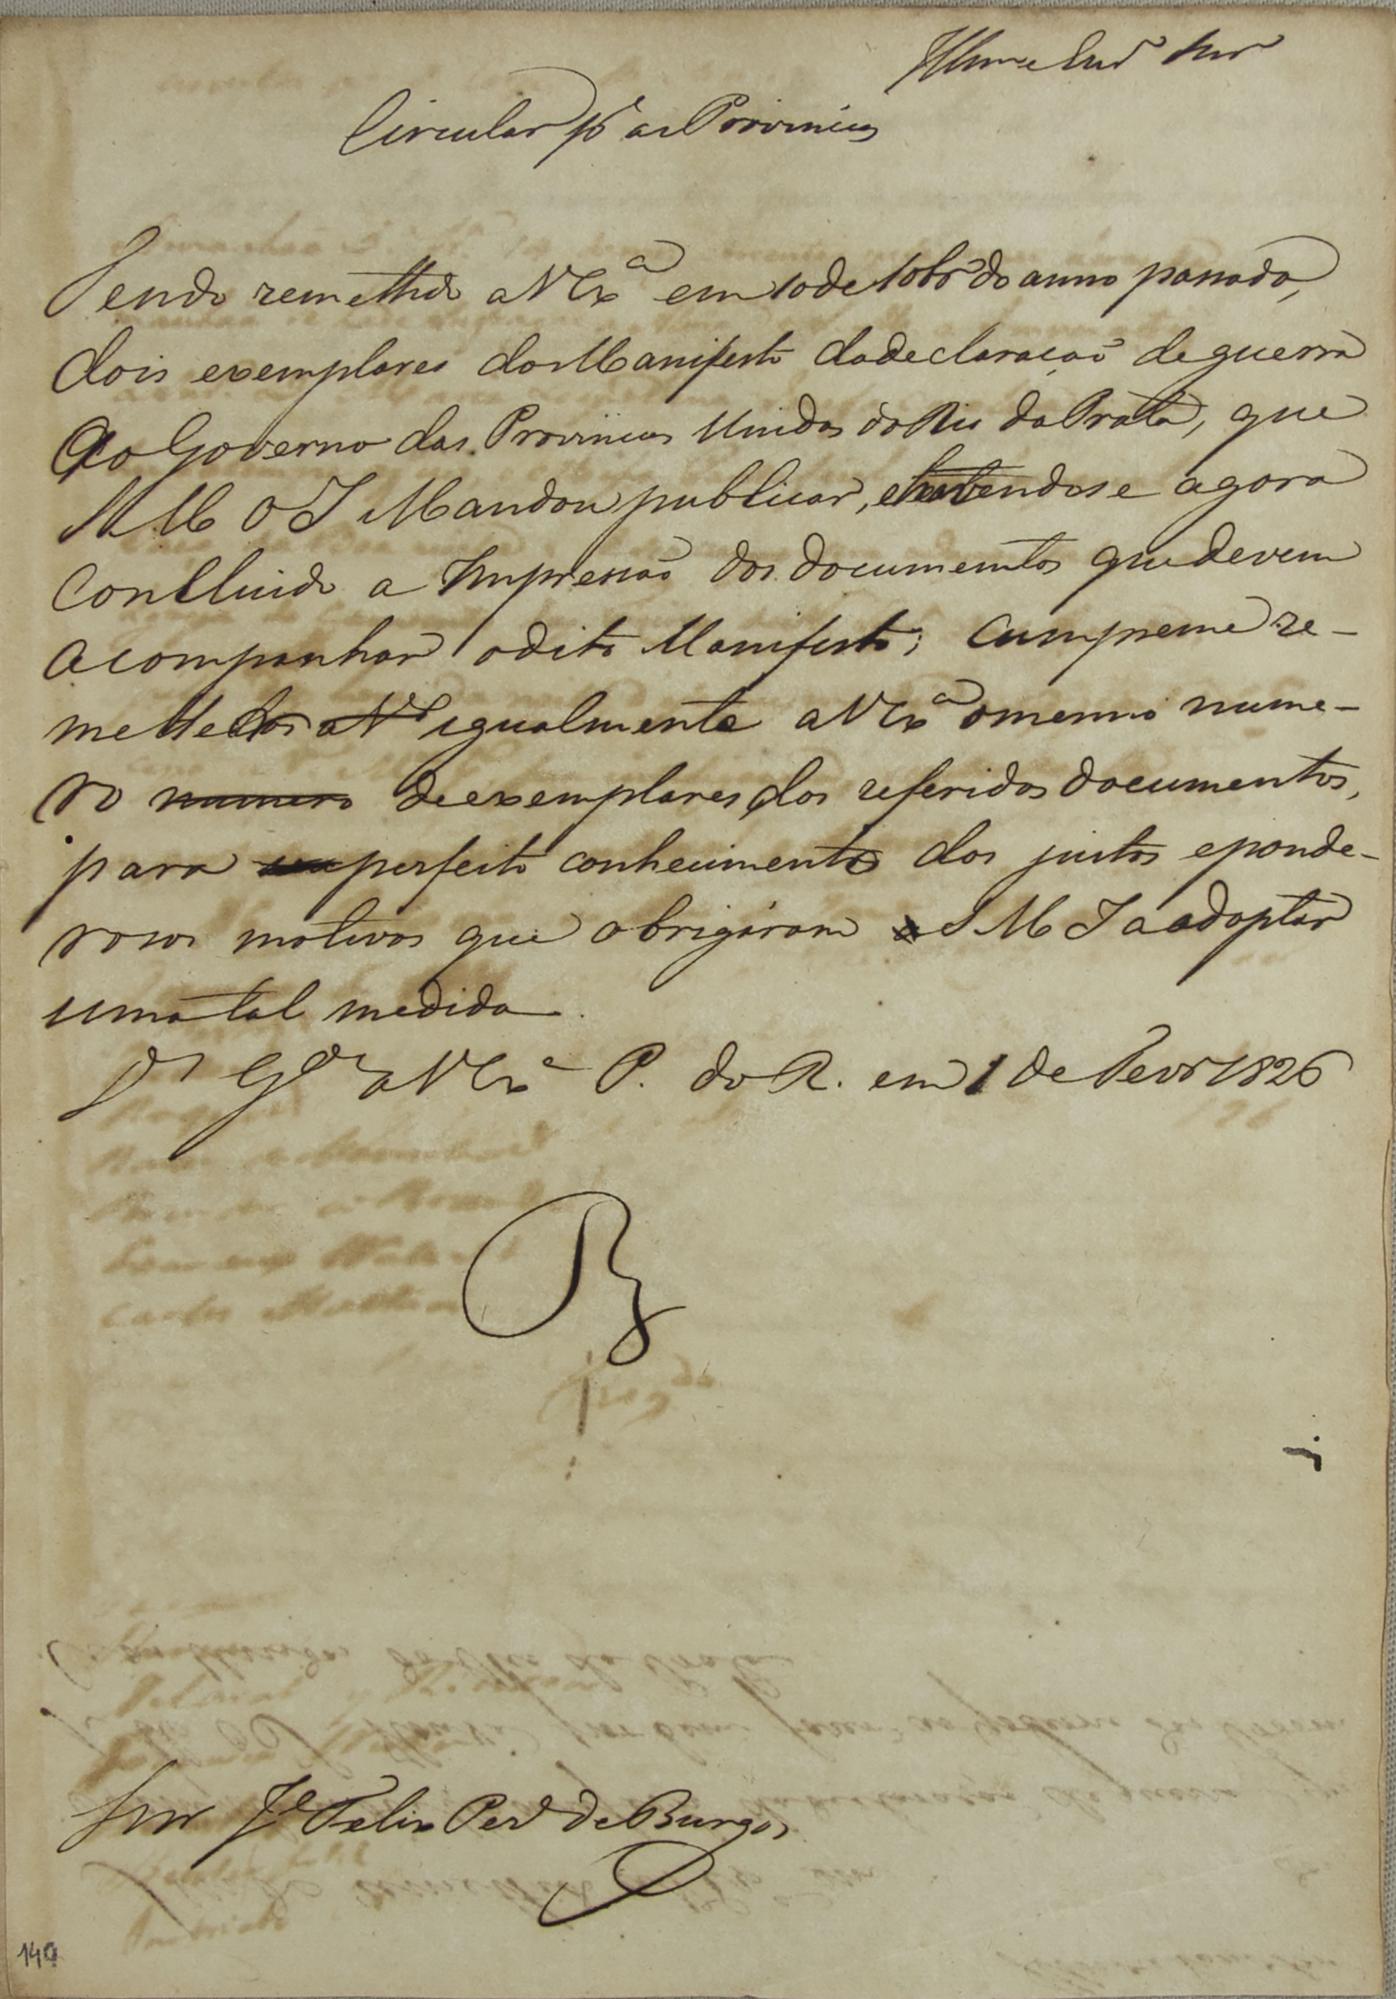 Illmo e Exmo Snr
Circular pª as Provincias
Tendo remettido a V Exª em 10 de 10bro do anno passado,
dois exemplares do Manifesto da declaração de guerra
ao Governo das Provincias Unidas do Rio da Prata, que
S M O I Mandou publicar, e havendose agora
concluido a Impressão dos documentos que devem
acompanhar o dito Manifesto; cumpreme re-
metter igualmente a V Exª o mesmo nume-
ro numero de exemplares dos referidos documentos,
para perfeito conhecimento dos justos e ponde-
rosos motivos que obrigáram a S M I a adoptar
uma tal medida
Ds Gde a V Exª P. do R. em 1 de Fevro 1826
Snr Je Felix Pera de Burgos
140